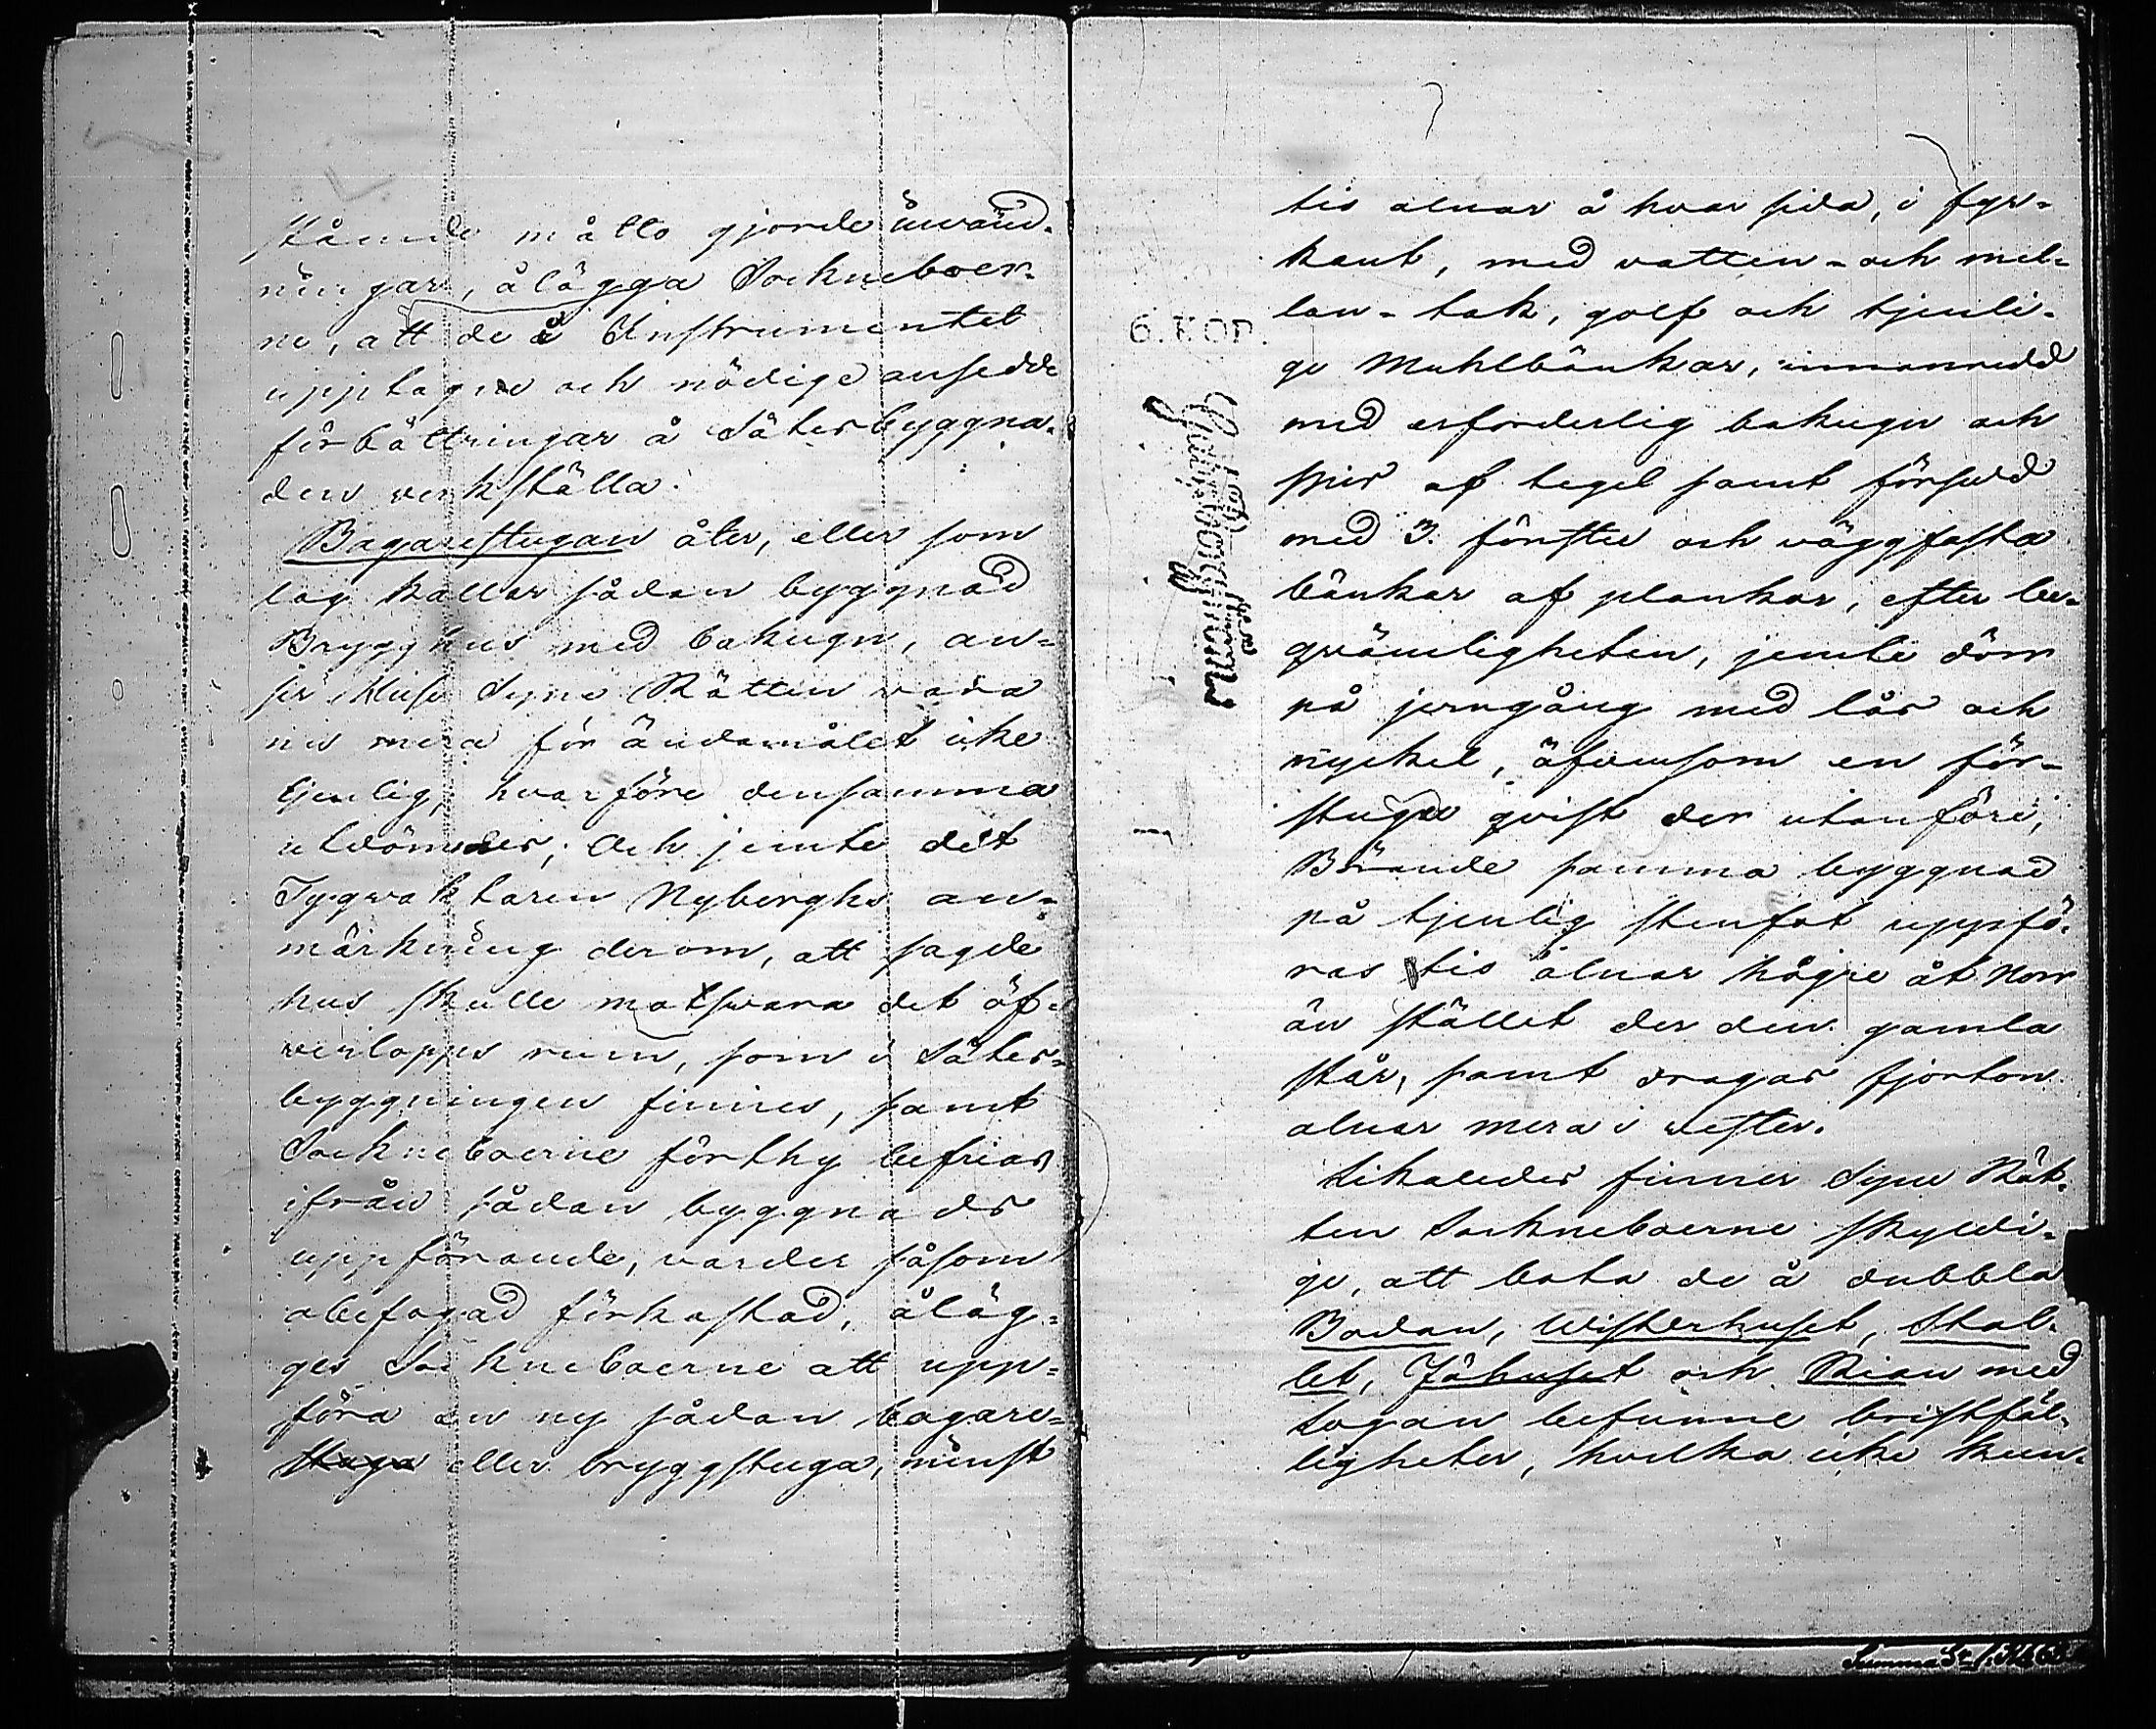 stående målto gjorde inwänd-
ningar, ålägga Sockneboer-
ne, att de i Instrumentet
upptagne och nödige ansedde
förbättringar å Säterbyggna-
den verkställa.
Bagarestugan åter, eller som
lag kallar sådan byggnad
Brygghus med bakugn, an-
ser Husesyns Rätten vara
nu mera för ändamålet icke
tjenlig, hvarföre densamma
utdömmes; Och jemte det
Tygvaktaren Nyberghs an-
märkning derom, att sagde
hus skulle motsvara det öf-
verlopps rum, som i Säter-
byggningen finnes, samt
Sockneboerne förthy befrias
ifrån sådan byggnads
uppförande, varder såsom
obefogad förkastad, åläg-
ges Sockneboerne att upp-
föra en ny sådan bagare-
stuga eller bryggstuga, minst
tio alnar å hvar sida, i fyr-
kant, med vatten- och mel-
lan-tak, golf och tjenli-
ge Muhlbänkar, innanredd
med erforderlig bakugn och
spis af tegel samt försedd
med 3. fönster och väggfasta
bänkar af plankor, efter be-
qvämligheten, jemte dörr
på jerngång med lås och
nyckel, äfvensom en för-
stugu qvist der utanföre,
Börande samma byggnad
på tjenlig stenfot uppfö-
ras tio alnar högre åt Norr
än stället der den gamla
står, samt dragas fjorton
alnar mera i vester.
Likaledes finner Syne Rät-
ten Sockneboerne skyldi-
ge, att bota de å dubbla
Bodan, Wisterhuset, Stal-
let, Fähuset och Rian med
Logan befunne bristfäl-
ligheter, hvilka icke kun-
6. KOP.